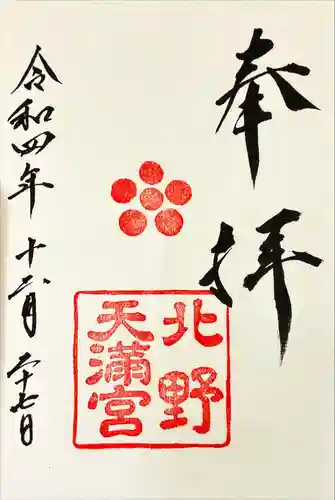 奉拝
北野
天満宮
令和四年十二月二十七日